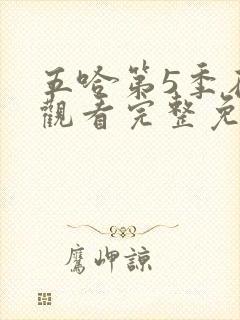 五哈第5季
觀看完整免
鷹岬諒